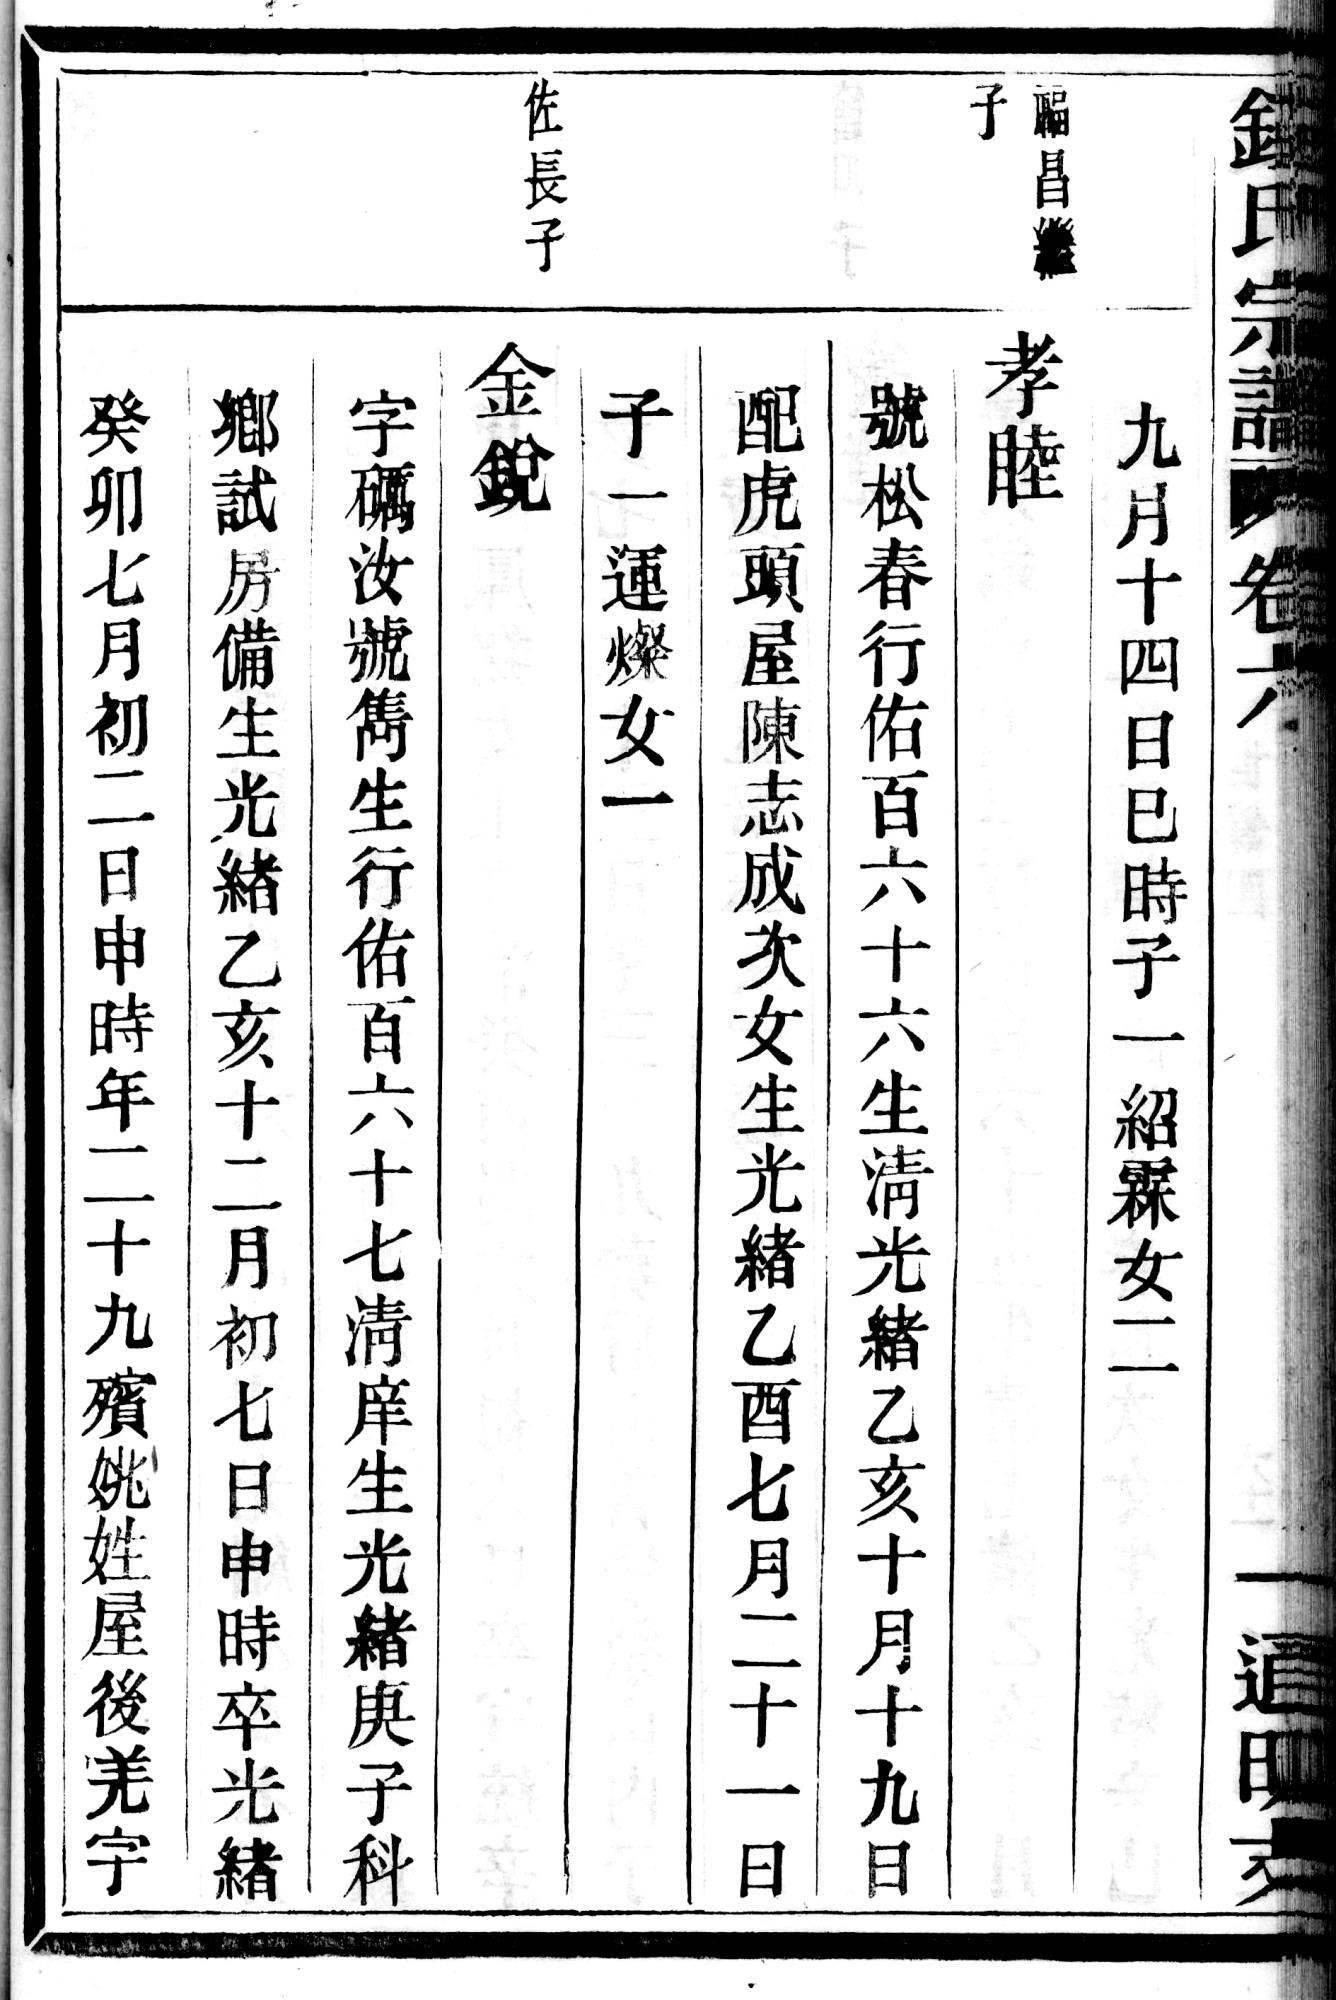 鍾氏宗譜 卷六 一 道明支
九月十四日巳時子一紹霖女二
福昌繼
子
孝睦
號松春行佑百六十六生清光緒乙亥十月十九日
配虎頭屋陳志成次女生光緒乙酉七月二十一日
子一運燦女一
佐長子
金銳
字礪汝號雋生行佑百六十七清庠生光緒庚子科
鄉試房備生光緒乙亥十二月初七日申時卒光緒
癸卯七月初二日申時年二十九殯姚姓屋後羌字